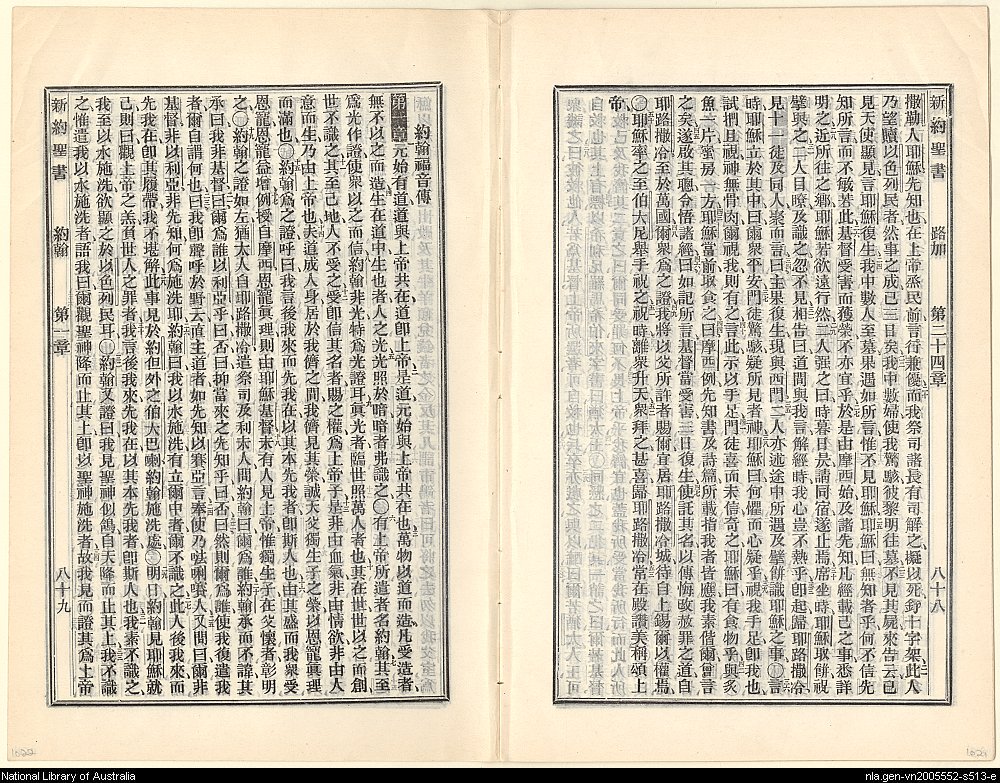 新約聖書 路加 第二十四章 八十八
撒勒人耶穌先知也在上帝烝民前言行兼優而我祭司諸長有司解之擬以死釘十字架此人
乃望贖以色列民者然事之成已三日矣我中數婦使我驚駭彼黎明往墓不見其屍來告云已
見天使顯見言耶穌復生我中數人至墓果遇如所言惟不見耶穌耶穌曰無知者乎何不信先
知所言而不敏若此基督受害而獲榮不亦宜乎於是由摩西始及諸先知凡經載己之事悉詳
明之近所往之鄉耶穌若欲遠行然二人强之曰時暮日昃請同宿遂止焉席坐時耶穌取餅祝
擘與之二人目瞭及識之忽不見相告曰道間與我言解經時我心豈不熱乎卽起歸耶路撒冷
見十一徒及同人聚而言曰主果復生現與西門二人亦述途中所遇及擘餅識耶穌之事言
時耶穌立於其中曰爾衆平安門徒驚駭疑所見者神耶穌曰何懼而心疑乎視我手足卽我也
試捫且視神無骨肉爾視我則有之言此示以手足門徒喜而未信奇之耶穌曰有食物乎與炙
魚一片蜜房一方耶穌當前取食之曰摩西例先知書及詩篇所載指我者皆應我素偕爾曾言
之矣遂啟其聰令悟諸經曰如記所言基督當受害三日復生使託其名以傳悔改赦罪之道自
耶路撒冷至於萬國爾衆爲之證我將以父所許者賜爾宜居耶路撒冷城待自上錫爾以權焉
耶穌率之至伯大尼舉手祝之祝時離衆升天衆拜之甚喜歸耶路撒冷常在殿讚美稱頌上
帝
約翰福音傳
第一章元始有道道與上帝共在道卽上帝是道元始與上帝共在也萬物以道而造凡受造者
無不以之而造生在道中生也者人之光光照於暗暗者弗識之有上帝所遣者名約翰其至
爲光作證使衆以之而信約翰非光特爲光證耳眞光者臨世照萬人者也其在世世以之而創
世不識之其至己地人不受之受卽信其名者賜之權爲上帝子是非由血氣非由情欲非由人
意而生乃由上帝也夫道成人身居於我儕之間我儕見其榮誠天父獨生子之榮以恩寵眞理
而滿也約翰爲之證呼曰我言後我來而先我在以其本先我者卽斯人也由其盛而我衆受
恩寵恩寵益增例授自摩西恩寵眞理則由耶穌基督未有人見上帝惟獨生子在父懷者彰明
之約翰之證如左猶太人自耶路撒冷遣祭司及利未人問約翰曰爾爲誰約翰承而不諱其
承曰我非基督曰爾爲誰以利亞乎曰否曰抑當來之先知乎曰否曰然則爾爲誰使我復遣我
者爾自謂何也曰我卽聲呼於野云直主道者如先知以賽亞言奉使乃𠵽唎㘔人又問曰爾非
基督非以利亞非先知何爲施洗耶約翰曰我以水施洗有立爾中者爾不識之此人後我來而
先我在卽其履帶我不堪解此事見於約但外之伯大巴喇約翰施洗處明日約翰見耶穌就
己則曰觀上帝之羔負世人之罪者我言後我來先我在以其本先我者卽斯人也我素不識之
我至以水施洗欲顯之於以色列民耳約翰又證曰我見聖神似鴿自天降而止其上我不識
之惟遣我以水施洗者語我曰爾觀聖神降而止其上卽以聖神施洗者故我見而證其爲上帝
新約聖書 約翰 第一章 八十九
1022
1021
National Library of Australia
nla.gen-vn2005552-s513-e